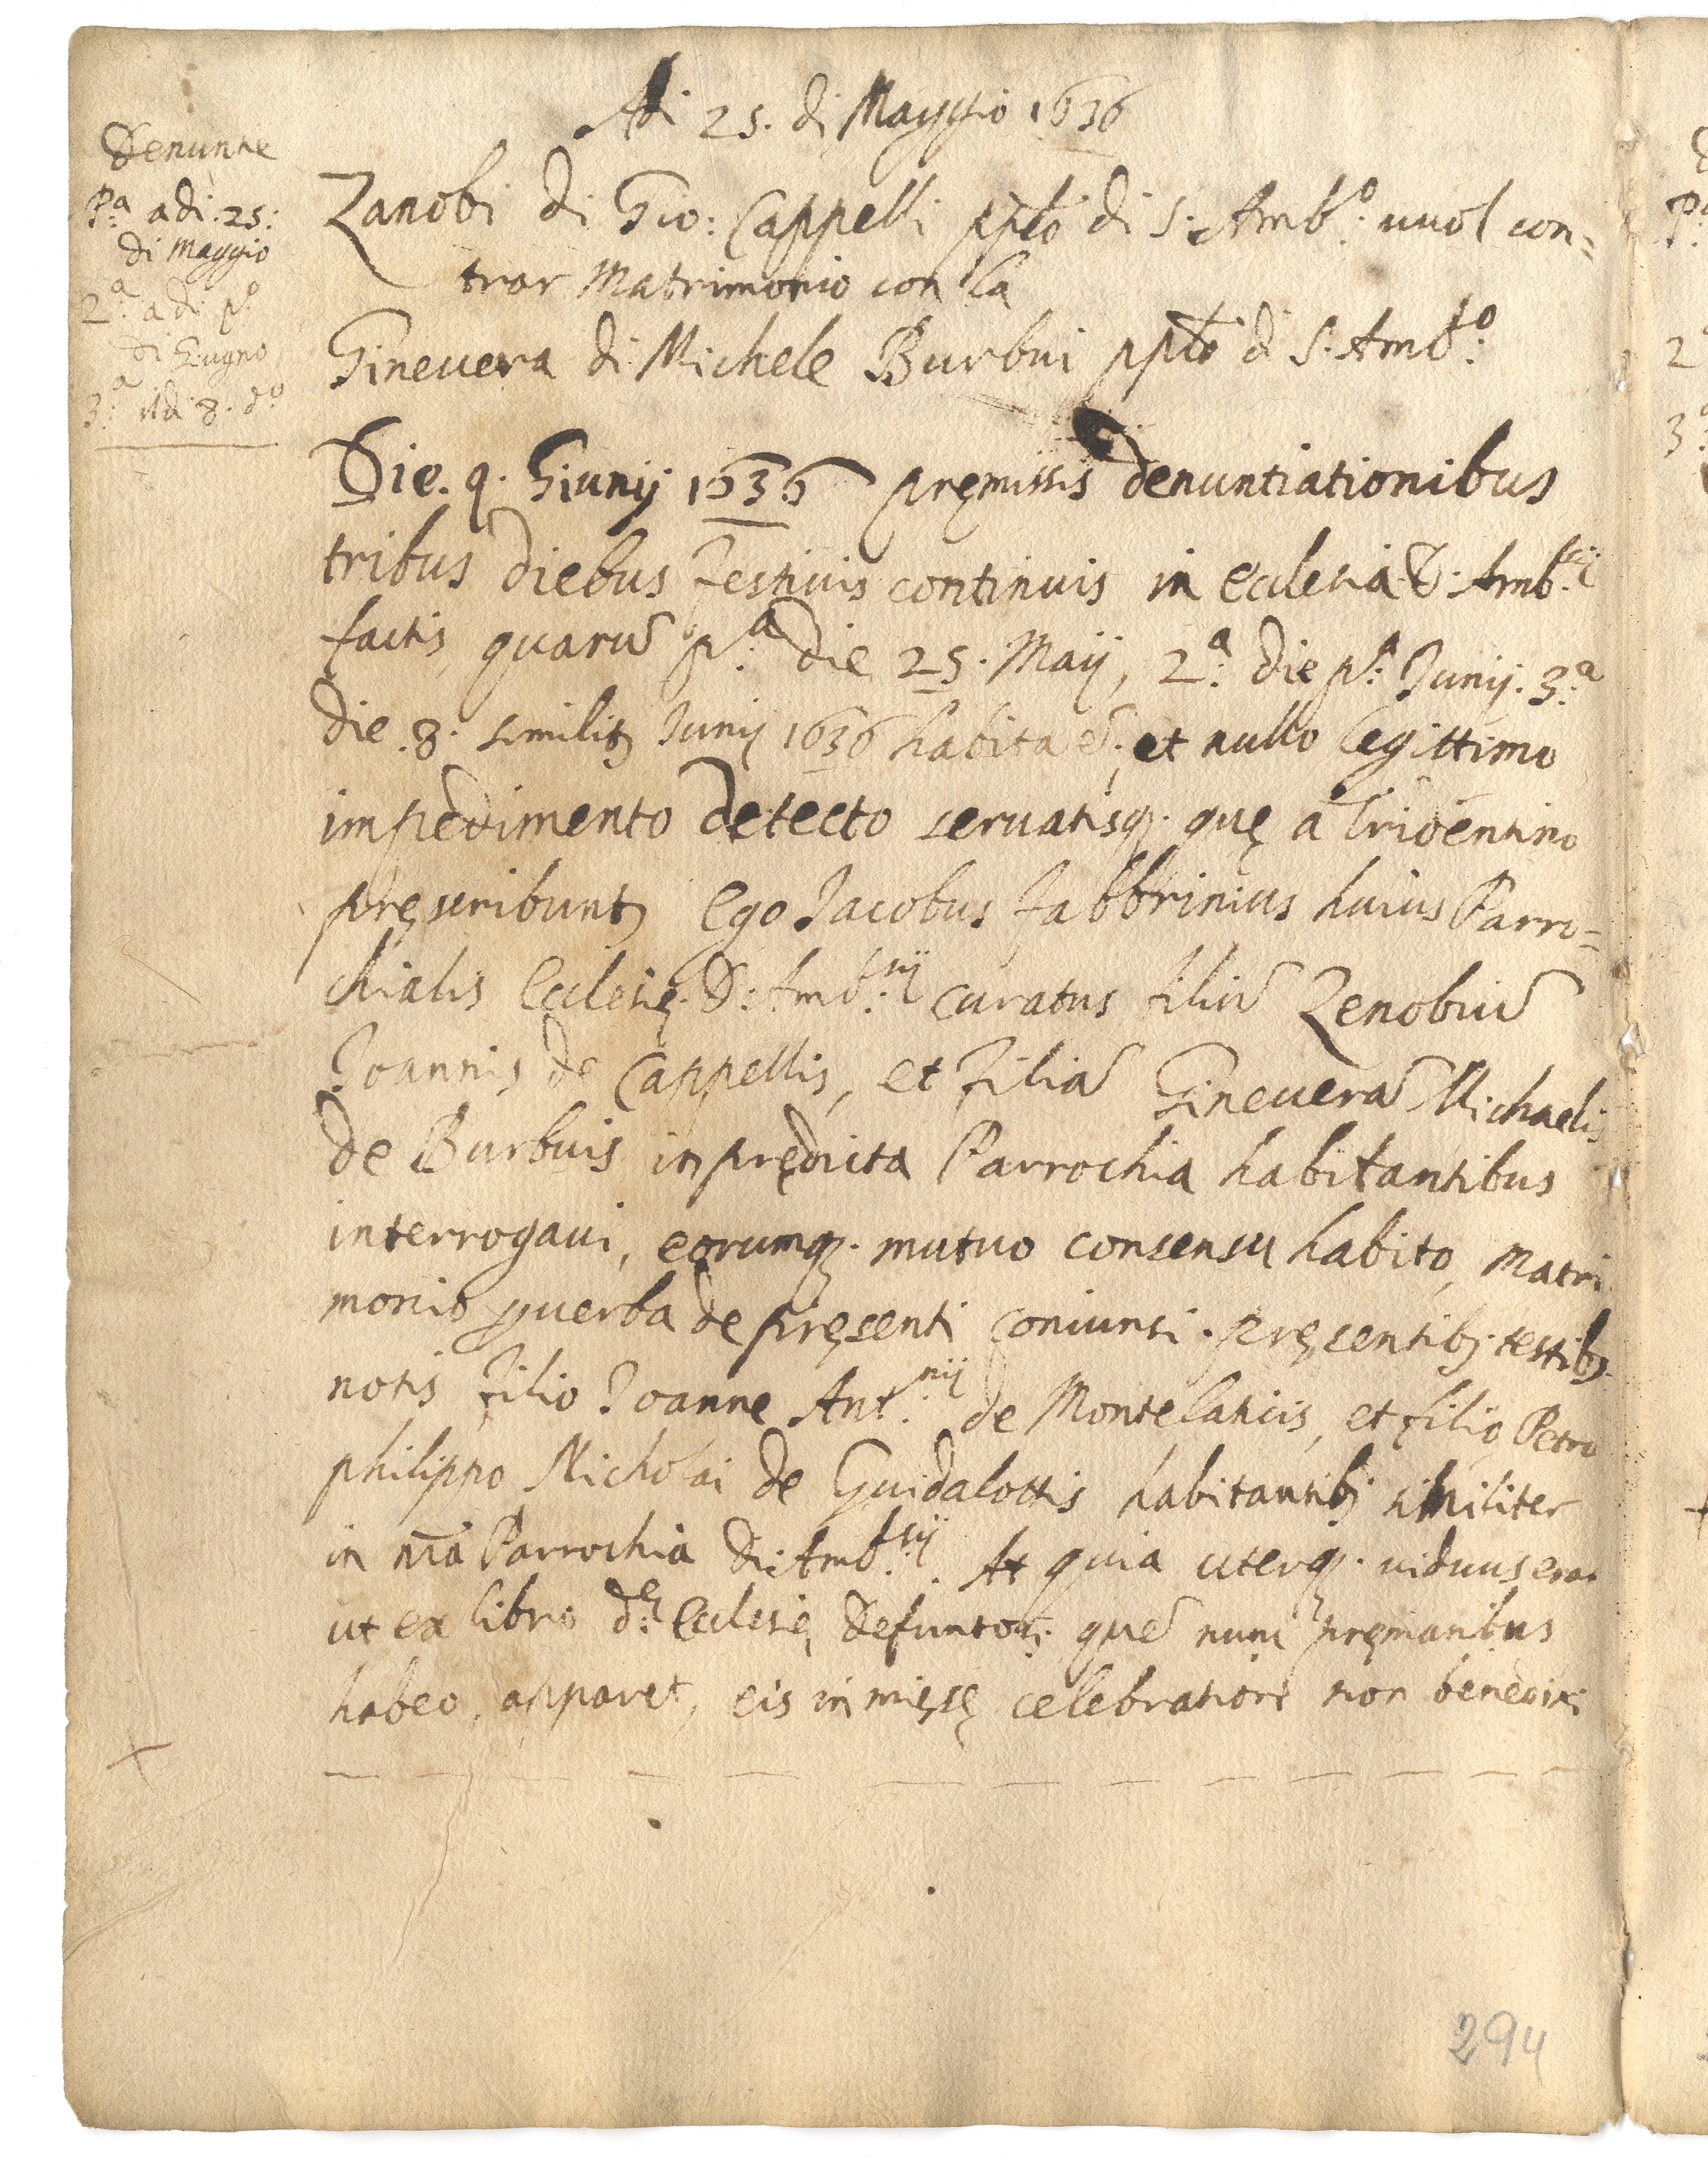 Adi 25. di Maggio 1636
Denunze
Pª. adi. 25:
di Maggio
2ª. adi pº.
di Giugno
3ª. Adi 8. dº
Zanobi di Gio: Cappelli pplo di S. Ambº. vuol con=
trar Matrimonio con la
Gineuera di Michele Burbui pplo di S. Ambº:
Die. 9. Giunij 1636 pręmissis denuntiationibus
tribus diebus festiuis continuis in ecclesia D. Amb.sij
factis, quarũ pª. die 25. Maij, 2ª. die pª. Junij. 3ª.
die .8. similitꝫ Junij 1636 habita ẽ, et nullo legittimo
impedimento detecto seruatisqꝫ. quę a Tridentino
pręscribuntꝫ Ego Jacobus fabbrinius huius Parro=
chialis Ecclesię. D. Amb.sij curatus filiũ Zenobiũ
Joannis de Cappellis, et filiã Gineuerã Michaelis
de Burbuis in prędicta Parrochia habitantibus
interrogaui, eorumqꝫ. mutuo consensu habito, Matri
monio ꝑ uerba de pręsenti coniunsi. pręsentibꝫ testibꝫ
notis filio Joanne Ant.nij de Montelaticis, et filio Petro
philippo Nicholai de Guidalottis habitantibꝫ similiter
in nr̃a Parrochia D. Amb.sij. At quia uterqꝫ. uiduus erat
ut ex libro d.ę Ecclesię Defuntoꝝ. quẽ nunc pręmanibus
habeo, apparet, eis in missę celebratione non benedixi
294